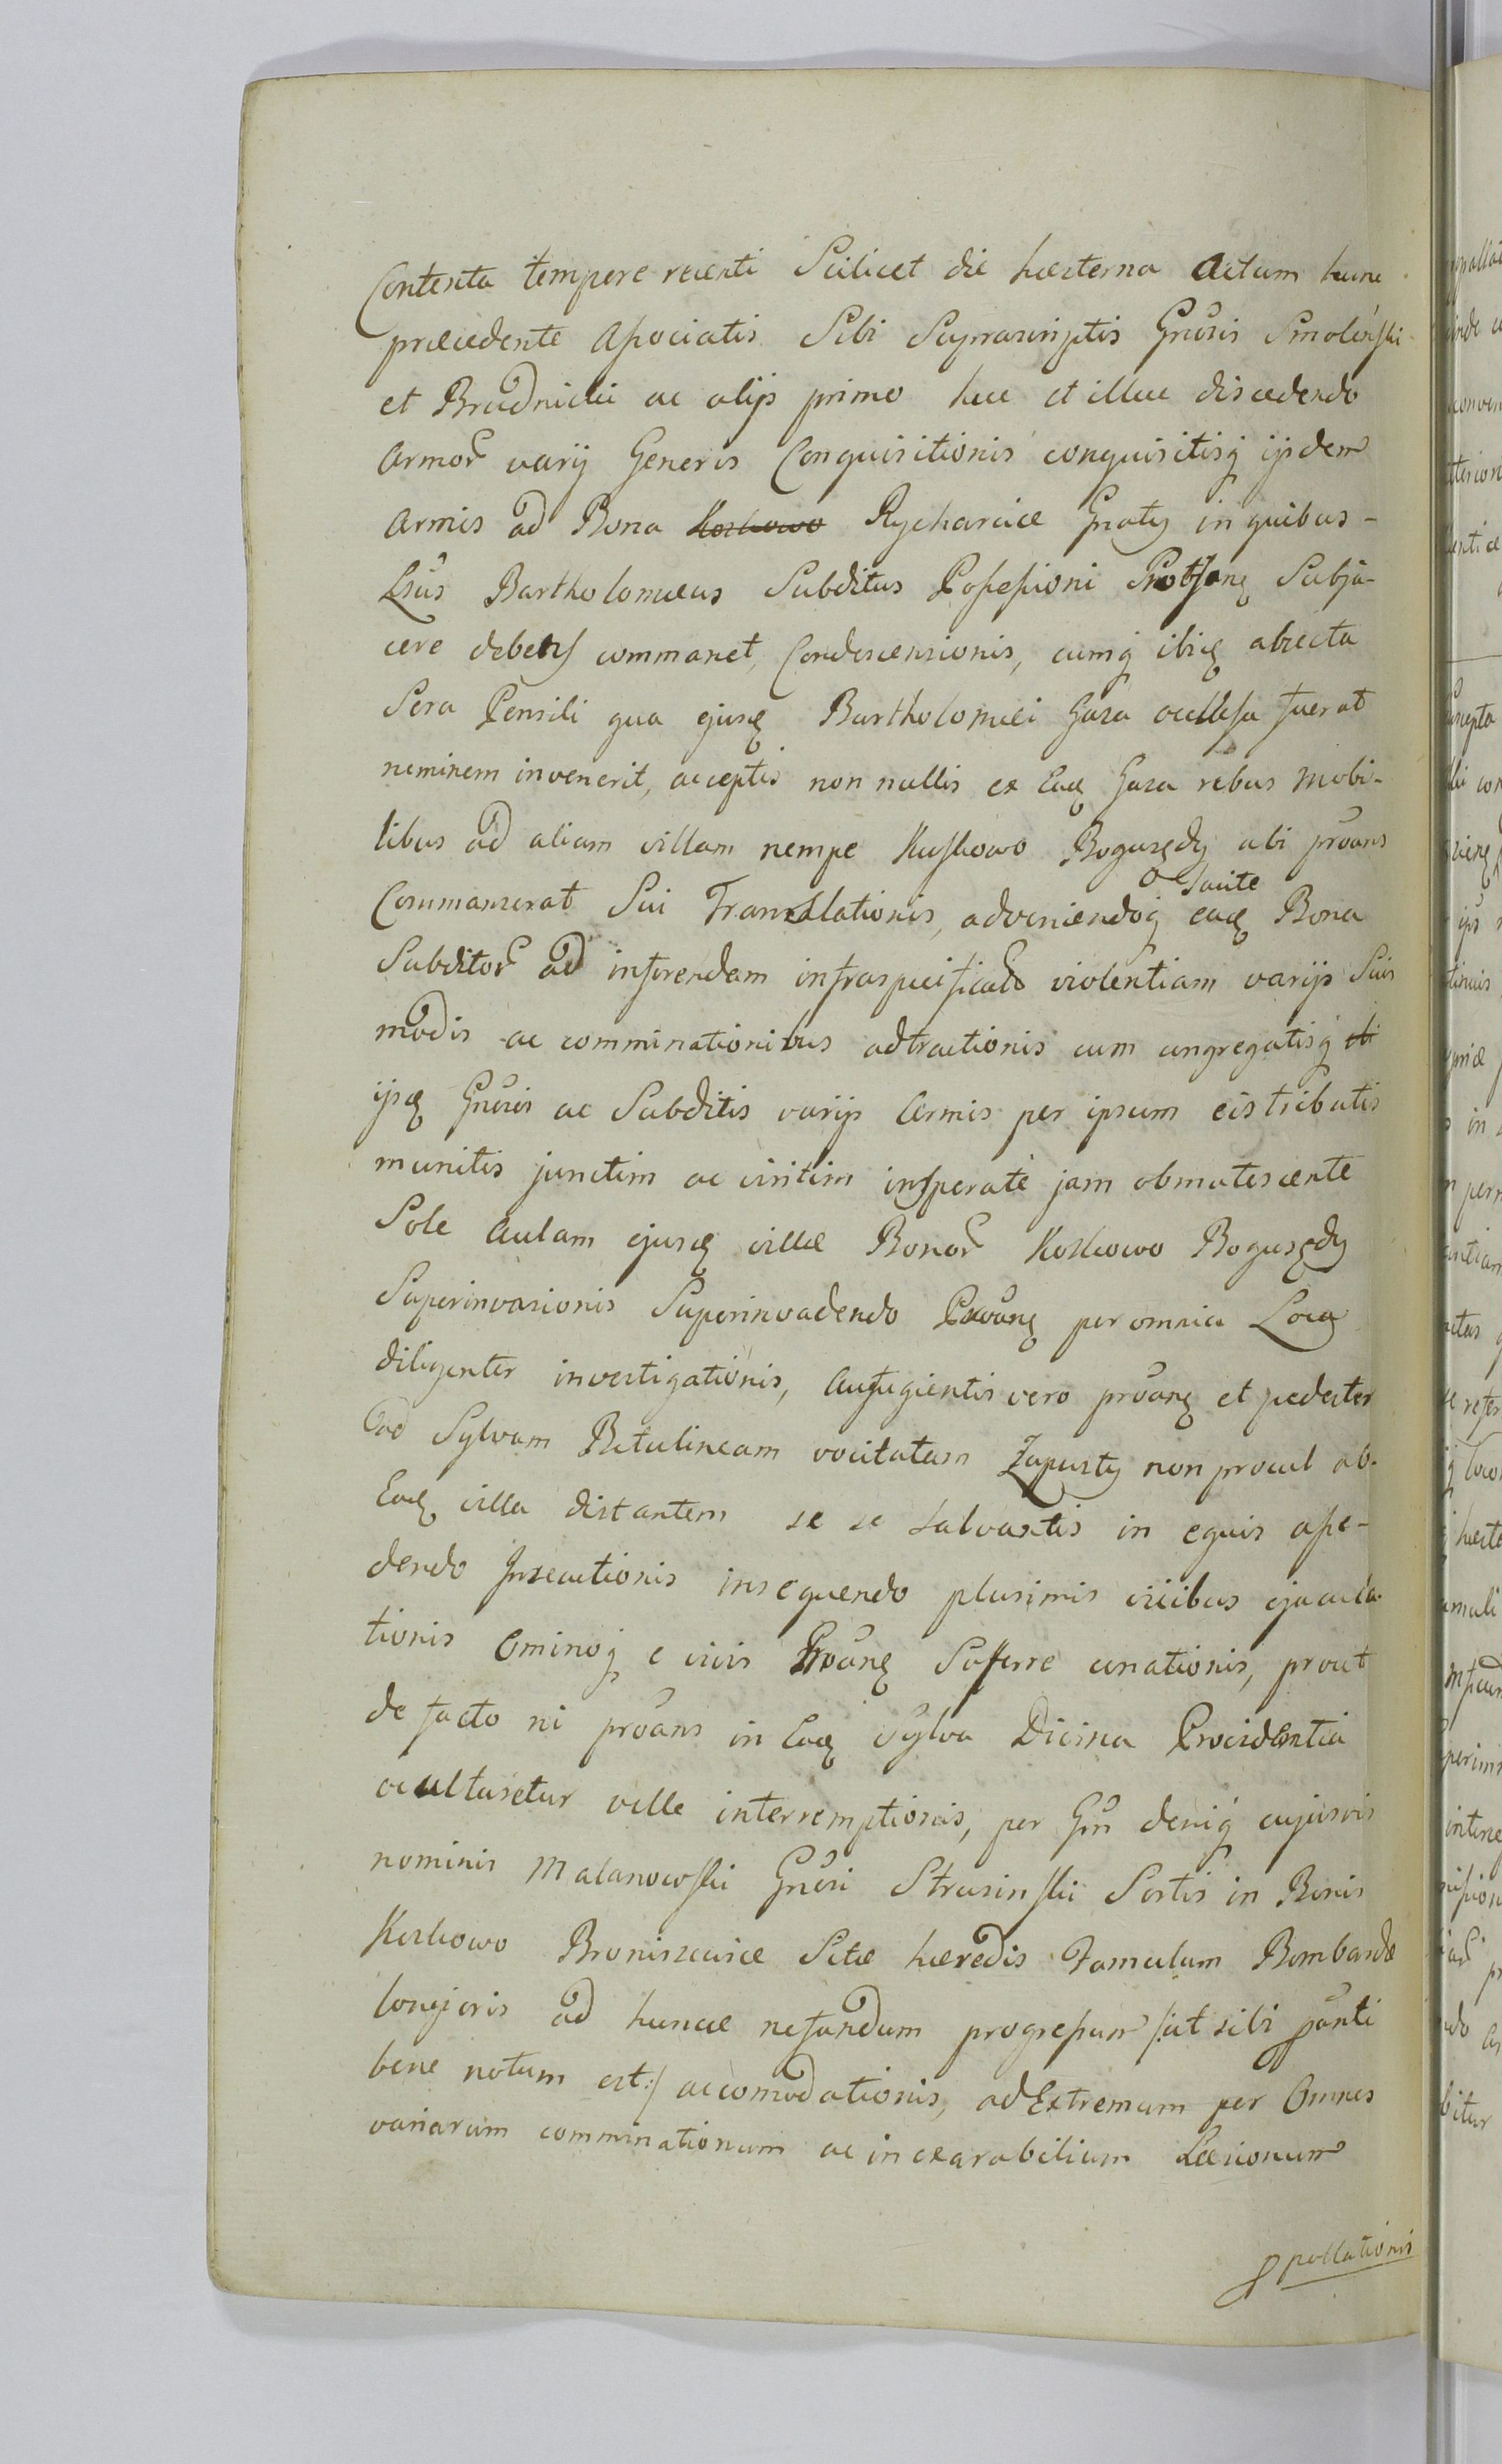 Contenta tempore recenti Scilicet die hæsterna Actum hunc
præcedente Associatis Sibi Suprascriptis Gnõsis Smoleński
et Brudnicki ac alijs primo huc et illuc discedendo
Armoř varij Generis Conquisitionis conquisitisq ijsdem
Armis ad Bona Koskowo Rycharcice Gnaty in quibus -
Lsus Bartholomeus Subditus Possessioni Subja-
cere debens commanet, Condescensionis, cumq ibiq abiecta
Sera Pensili qua ejusq Bartholomæi Gaza occlusa fuerat
neminem invenerit, acceptis non nullis ex Eaq Gaza rebus Mobi-
libus ad aliam villam nempe Koskowo Boguszędy ubi proãns
Commanserat Sui Translationis, adveniendoq eaq Bona
Subditoř ad inferendam infraspecificatã violentiam varijs Suis
modis ac comminationibus adtractionis cum congregatisq
ijsq Gnõsis ac Subditis varijs Armis per ipsum eis tributis
munitis junctim ac viritim insperatè jam obmutescente
Sole Aulam ejusq villæ Bonoř Koskowo Boguszędy
Superinvasionis Superinvadendo Proãnq per omnia Loca
diligenter investigationis, Aufugientis vero proãnq et pedester
ad Sylvam Betulineam vocitatam Zapusty non procul ab-
Eaq villa distantem se se salvantis in equis asse-
dendo Insecutionis insequendo plurimis vicibus ejacula-
tionis Ominoq e vivis Proãnq Sufferre conationis, prout
de facto ni proãns in Eaq Sylva Divina Providentia
occultaretur velle interremptionis, per Gñ deniq cujusvis
nominis Malanowski Gnõsi Strusinski Sortis in Bonis
Koskowo Broniszewice Sitæ hæredis Famulum Bombardæ
longioris ad huncce nefandum progressum /:ut sibi pãnti
bene notum est:/ accomodationis, ad Extremum per Omnes
variarum comminationum ac inexarabilium Læsionum
pollationis